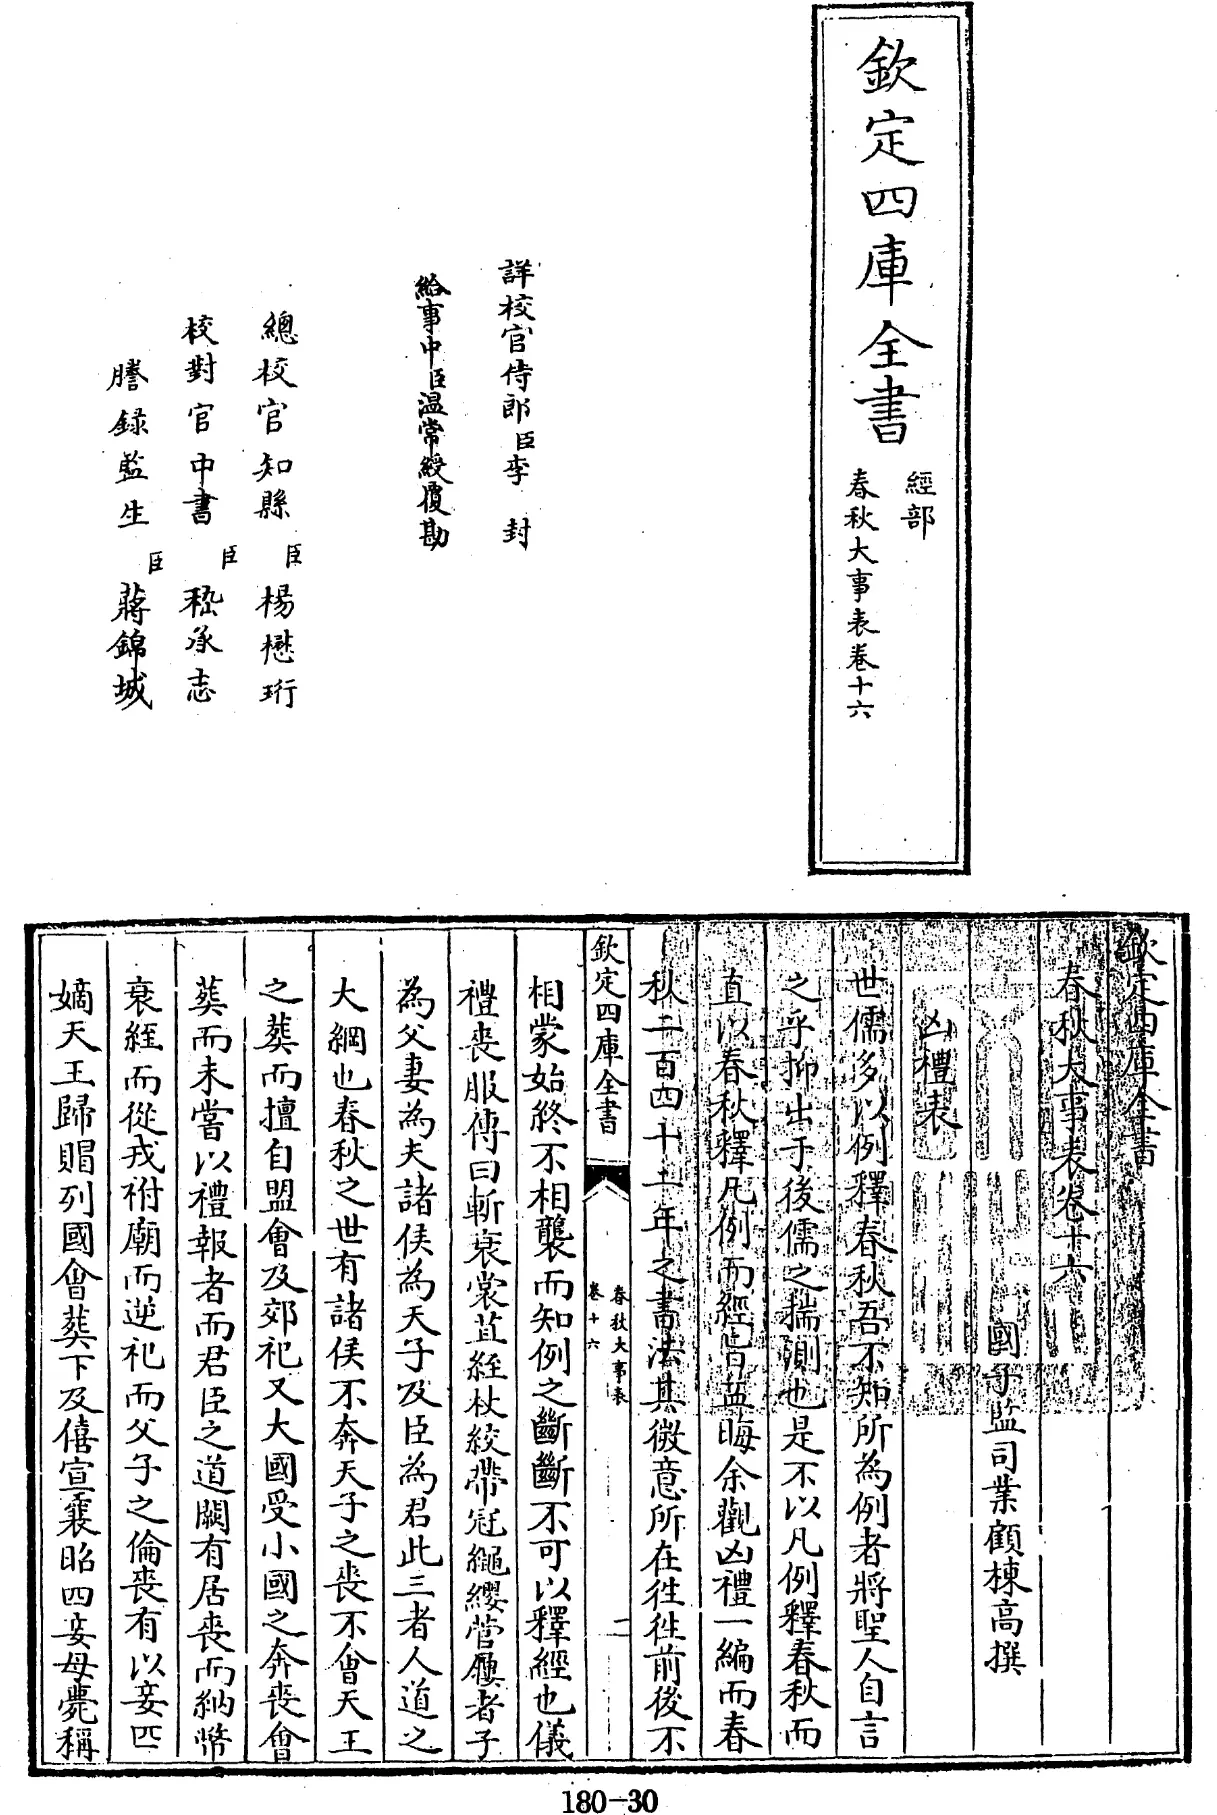 欽定四庫全書
經部
春秋大事表卷十六
詳校官侍郎臣李封
給事中臣温常綬覆勘
總校官知縣臣楊懋珩
校對官中書臣嵇承志
謄録監生臣蔣錦城
欽定四庫全書
春秋大事表卷十六
國子監司業顧棟高撰
凶禮表
世儒多以例釋春秋吾不知所為例者將聖人自言
之乎抑出于後儒之揣測也是不以凡例釋春秋而
直以春秋釋凡例而經旨益晦余觀凶禮一編而春
秋二百四十二年之書法其微意所在往往前後不
欽定四庫全書
春秋大事表
卷十六
一
相蒙始終不相襲而知例之斷斷不可以釋經也儀
禮喪服傳曰斬衰裳苴絰杖絞帶冠繩纓菅屨者子
為父妻為夫諸侯為天子及臣為君此三者人道之
大綱也春秋之世有諸侯不奔天子之喪不會天王
之葬而擅自盟會及郊祀又大國受小國之奔喪會
葬而未嘗以禮報者而君臣之道闕有居喪而納幣
衰絰而從戎祔廟而逆祀而父子之倫喪有以妾匹
嫡天王歸賵列國會葬下及僖宣襄昭四妾母薨稱
180-30